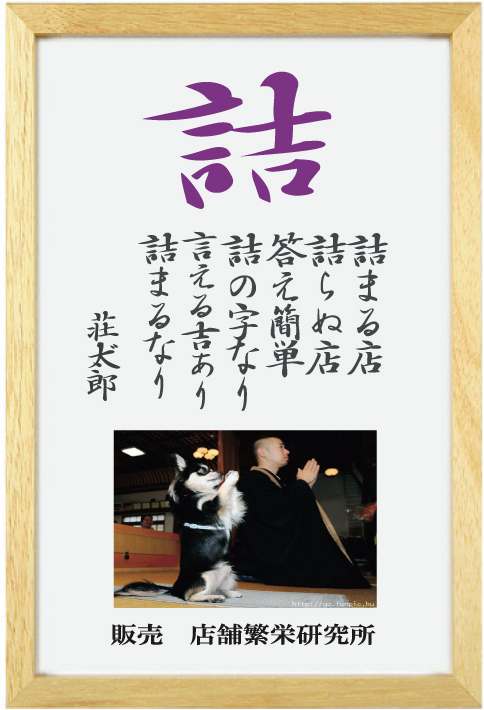 詰
詰まる店
詰らぬ店
答え簡単
詰の字なり
言える吉あり
詰まるなり
荘犬郎
http://gz.funpic.hu
販売　店舗繁栄研究所